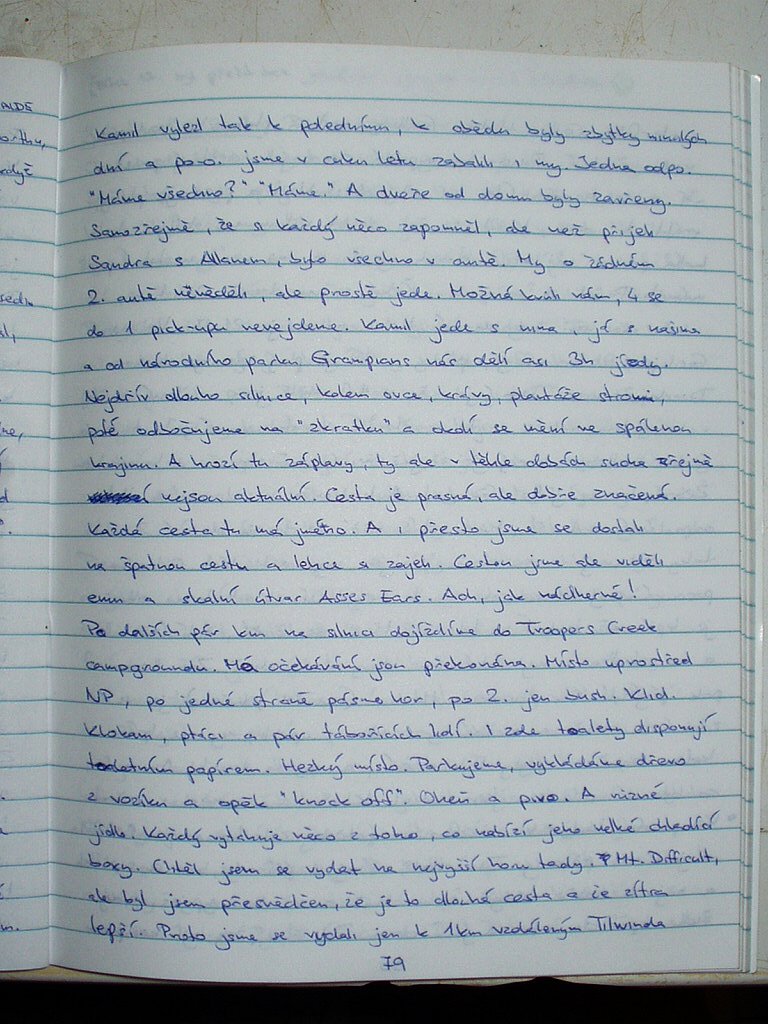 ALDE
Kamil vylezl tak k polednímu, k obědu byly zbytky minulých
dní a po-o. jsme v cuku letu zabalili i my. Jedna odpo.
"Máme všechno?" "Máme." A dveře od domu byly zavřeny.
Samozřejmě, že si každý něco zapomněl, ale než přijek
Sandra s Allanem, bylo všechno v autě. My o žádném
2. autě nevěděli, ale prostě jede. Možná kvůli nám, 4 se
do 1 pick-upu nevejdeme. Kamil jede s nima, já s našima
a od národního parku Grampians nás dělí asi 3h jízdy.
Nejdřív dlouho silnice, kolem ovce, krávy, plantáže stromů,
poté odbočujeme na "zkratku" a okolí se mění ve spálenou
krajinu. A hrozí tu záplavy, ty ale v těhle dobách sucha zřejmě
nejsou aktuální. Cesta je prašná, ale dobře značená.
Každá cesta tu má jméno. A i přesto jsme se dostali
na špatnou cestu a lehce si zajeli. Cestou jsme ale viděli
emu a skalní útvar Asses Ears. Ach, jak nádherné!
Po dalších pár km na silnici dojíždíme do Troopers Creek
campgroundu. Má očekávání jsou překonána. Místo uprostřed
NP, po jedné straně pásmo hor, po 2. jen bush. Klid.
Klokani, ptáci a pár tábořících lidí. I zde toalety disponují
toaletním papírem. Hezký místo. Parkujeme, vykládáme dřevo
z vozíku a opěk "knock off". Oheň a pivo. A různé
jídlo. Každý vytahuje něco z toho, co nabízí jeho velké chladící
boxy. Chtěl jsem se vydat na nejvyšší horu tady. Mt. Difficult,
ale byl jsem přesvědčen, že je to dlouhá cesta a že zítra
lepší. Proto jsme se vydali jen k 1km vzdáleným Tilwinda
79